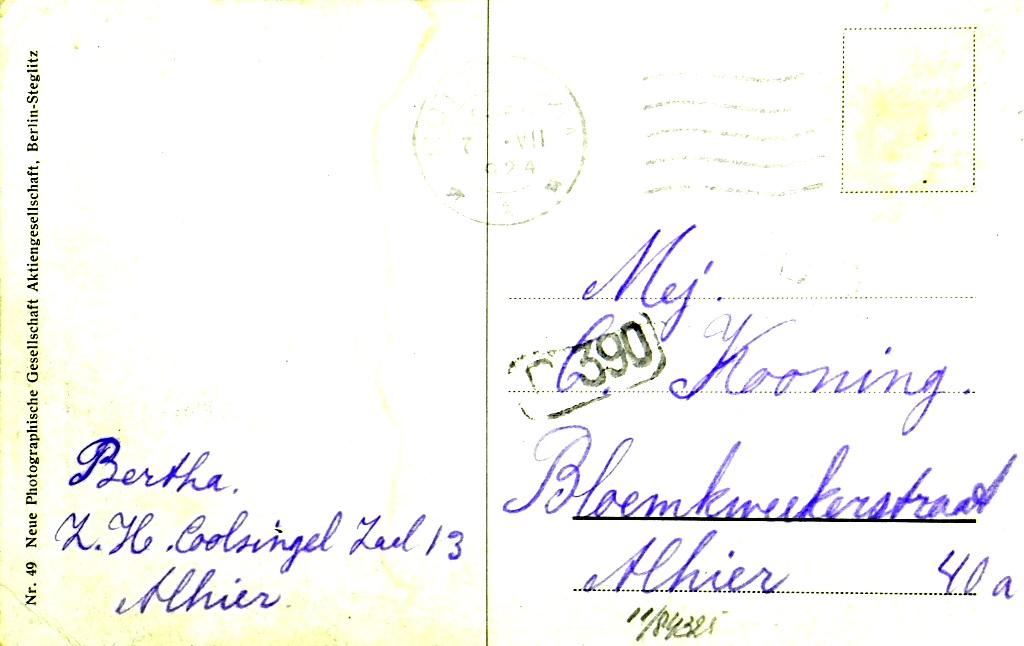 Nr. 49 Neue Photographische Gesellschaft Aktiengesellschaft, Berlin-Steglitz
Bertha.
Z.H. Coolsingel Zaal 13
Alhier
VII
924
Mej.
C. Kooning.
390
Bloemkweekerstraat
Alhier 40a